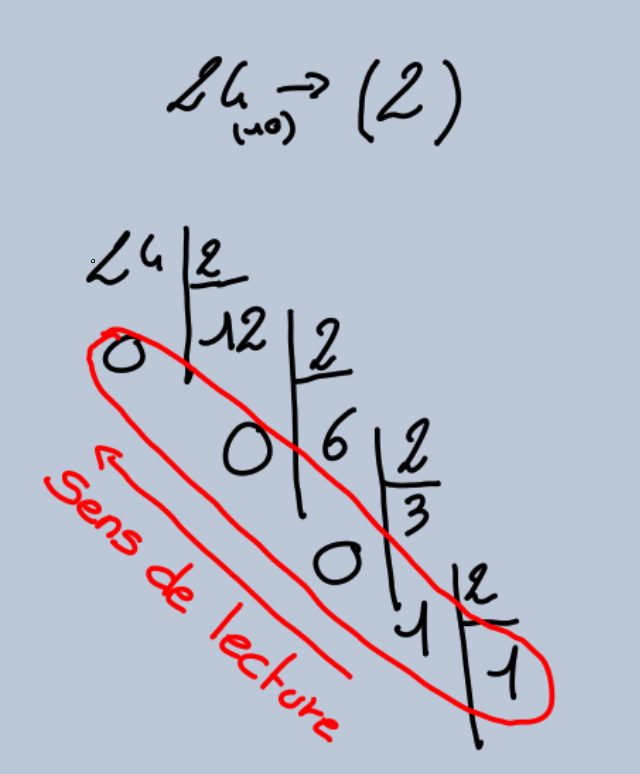 24(10) → (2)
24 2
12 2
0
6 2
0
3
0
2
1
1
sens de lecture